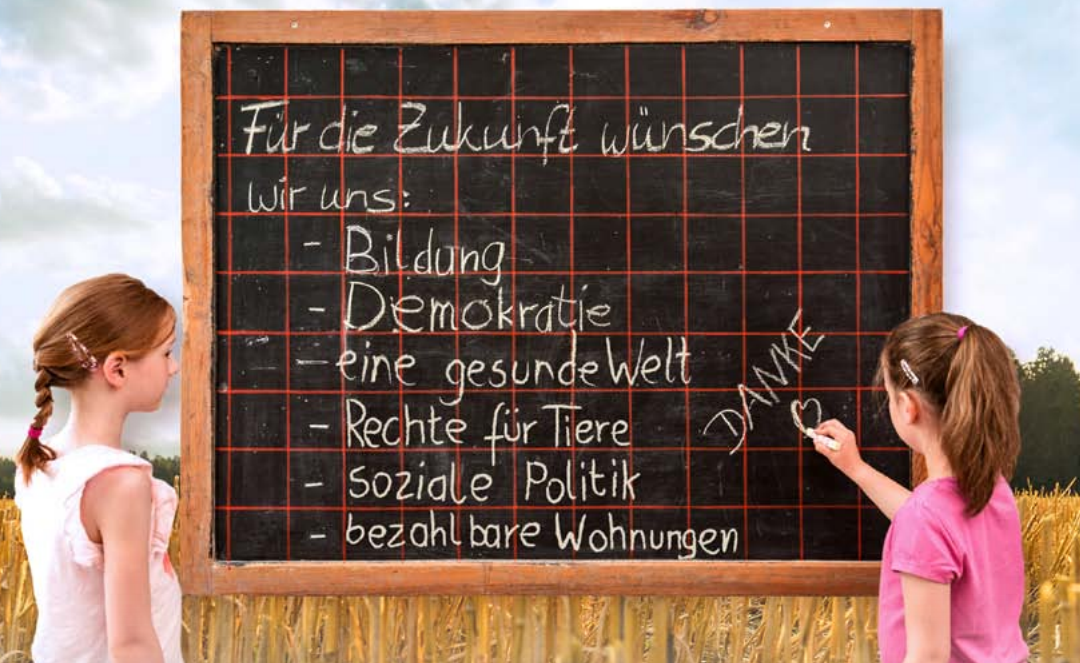 Für die Zukunft wünschen
wir uns:
- Bildung
- Demokratie
- eine gesunde Welt
- Rechte für Tiere
- soziale Politik
- bezahlbare Wohnungen
DANKE